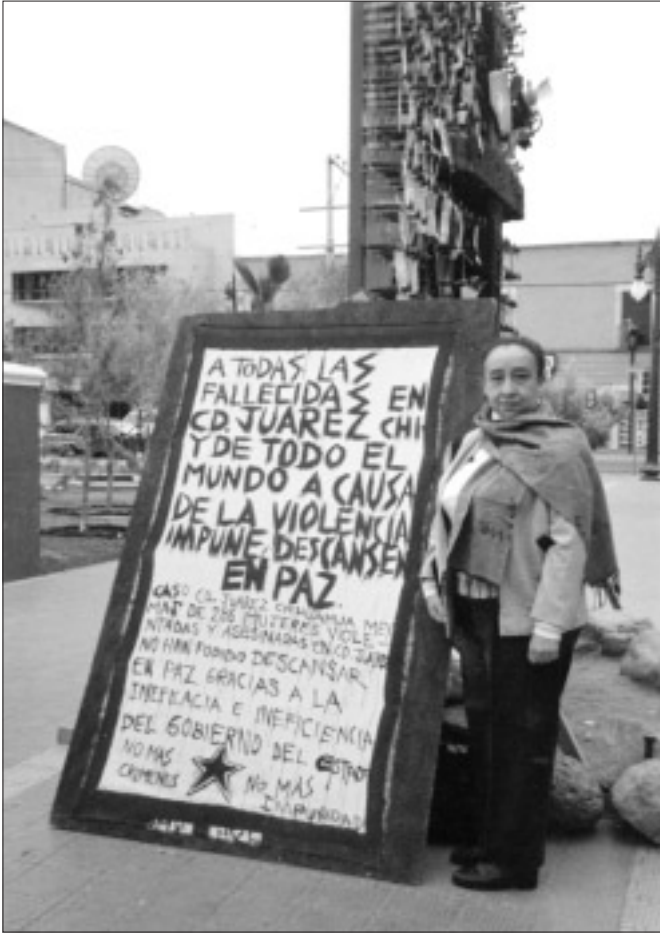 A TODAS LAS
FALLECIDAS EN
CD. JUAREZ CHI
Y DE TODO EL
MUNDO A CAUSA
DE LA VIOLENCIA
IMPUNE, DESCANSEN
EN PAZ.
CASO CD. JUAREZ CHIHUAHUA MEX
MAS DE 286 MUJERES VIOLEN
TADAS Y ASESINADAS EN CD JUAREZ
NO HAN PODIDO DESCANSAR
EN PAZ GRACIAS A LA
INEFICACIA E INEFICIENCIA
DEL GOBIERNO DEL ESTADO
NO MAS
CRIMENES
NO MAS
IMPUNIDAD